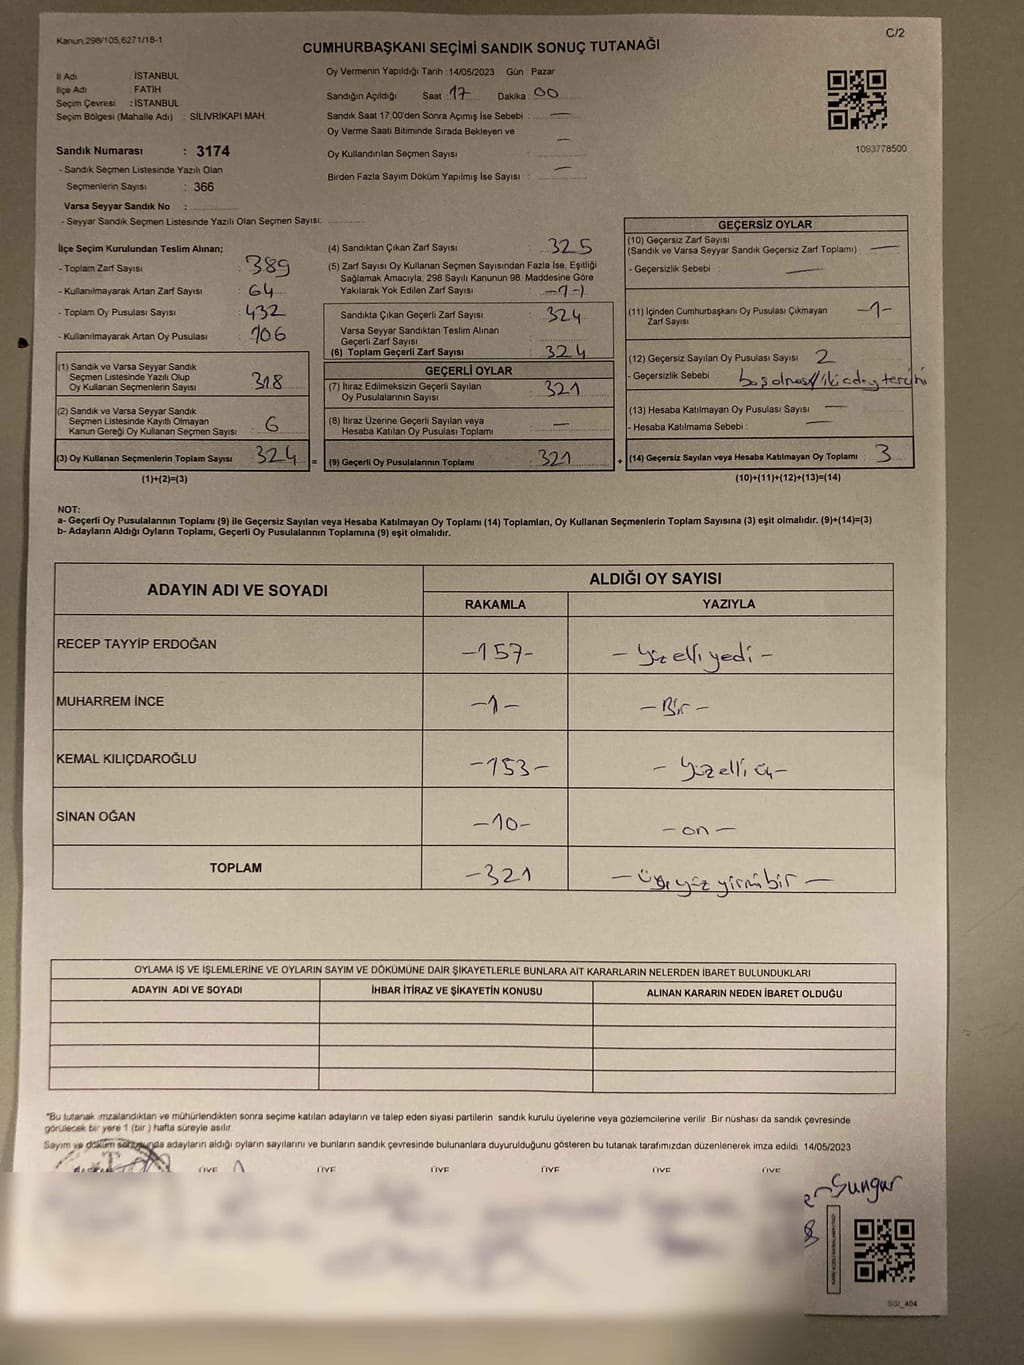 Kanun.298/105,6271/18-1
C/2
CUMHURBAŞKANI SEÇİMİ SANDIK SONUÇ TUTANAĞI
İl Adı : İSTANBUL
İlçe Adı : FATİH
Seçim Çevresi : İSTANBUL
Seçim Bölgesi (Mahalle Adı) : SİLİVRİKAPI MAH
Sandık Numarası : 3174
- Sandık Seçmen Listesinde Yazılı Olan
Seçmenlerin Sayısı : 366
Varsa Seyyar Sandık No :
- Seyyar Sandık Seçmen Listesinde Yazılı Olan Seçmen Sayısı:
Oy Vermenin Yapıldığı Tarih :14/05/2023 Gün : Pazar
Sandığın Açıldığı Saat : 17 Dakika : 00
Sandık Saat 17:00'den Sonra Açımış İse Sebebi : —
Oy Verme Saati Bitiminde Sırada Bekleyen ve
Oy Kullandırılan Seçmen Sayısı : —
Birden Fazla Sayım Döküm Yapılmış İse Sayısı : —
1093778500
İlçe Seçim Kurulundan Teslim Alınan;
- Toplam Zarf Sayısı : 389
- Kullanılmayarak Artan Zarf Sayısı : 64
- Toplam Oy Pusulası Sayısı : 432
- Kullanılmayarak Artan Oy Pusulası : 106
(1) Sandık ve Varsa Seyyar Sandık
Seçmen Listesinde Yazılı Olup
Oy Kullanan Seçmenlerin Sayısı : 318
(2) Sandık ve Varsa Seyyar Sandık
Seçmen Listesinde Kayıtlı Olmayan
Kanun Gereği Oy Kullanan Seçmen Sayısı : 6
(3) Oy Kullanan Seçmenlerin Toplam Sayısı : 324
(1)+(2)=(3)
(4) Sandıktan Çıkan Zarf Sayısı : 325
(5) Zarf Sayısı Oy Kullanan Seçmen Sayısından Fazla İse, Eşitliği
Sağlamak Amacıyla, 298 Sayılı Kanunun 98. Maddesine Göre
Yakılarak Yok Edilen Zarf Sayısı : -1-
Sandıkta Çıkan Geçerli Zarf Sayısı : 324
Varsa Seyyar Sandıktan Teslim Alınan
Geçerli Zarf Sayısı :
(6) Toplam Geçerli Zarf Sayısı : 324
GEÇERLİ OYLAR
(7) İtiraz Edilmeksizin Geçerli Sayılan
Oy Pusulalarının Sayısı : 321
(8) İtiraz Üzerine Geçerli Sayılan veya
Hesaba Katılan Oy Pusulası Toplamı : —
= (9) Geçerli Oy Pusulalarının Toplamı : 321
GEÇERSİZ OYLAR
(10) Geçersiz Zarf Sayısı
(Sandık ve Varsa Seyyar Sandık Geçersiz Zarf Toplamı) : —
- Geçersizlik Sebebi : —
(11) İçinden Cumhurbaşkanı Oy Pusulası Çıkmayan
Zarf Sayısı : -1-
(12) Geçersiz Sayılan Oy Pusulası Sayısı : 2
- Geçersizlik Sebebi : boş olması/iki aday tercihi
(13) Hesaba Katılmayan Oy Pusulası Sayısı : —
- Hesaba Katılmama Sebebi : —
+ (14) Geçersiz Sayılan veya Hesaba Katılmayan Oy Toplamı : 3
(10)+(11)+(12)+(13)=(14)
NOT:
a- Geçerli Oy Pusulalarının Toplamı (9) ile Geçersiz Sayılan veya Hesaba Katılmayan Oy Toplamı (14) Toplamları, Oy Kullanan Seçmenlerin Toplam Sayısına (3) eşit olmalıdır. (9)+(14)=(3)
b- Adayların Aldığı Oyların Toplamı, Geçerli Oy Pusulalarının Toplamına (9) eşit olmalıdır.
ADAYIN ADI VE SOYADI
ALDIĞI OY SAYISI
RAKAMLA YAZIYLA
RECEP TAYYİP ERDOĞAN -157- - yüz elli yedi -
MUHARREM İNCE -1- - Bir -
KEMAL KILIÇDAROĞLU -153- - yüz elli üç -
SİNAN OĞAN -10- - on -
TOPLAM -321 - üçyüz yirmi bir -
OYLAMA İŞ VE İŞLEMLERİNE VE OYLARIN SAYIM VE DÖKÜMÜNE DAİR ŞİKAYETLERLE BUNLARA AİT KARARLARIN NELERDEN İBARET BULUNDUKLARI
ADAYIN ADI VE SOYADI İHBAR İTİRAZ VE ŞİKAYETİN KONUSU ALINAN KARARIN NEDEN İBARET OLDUĞU
*Bu tutanak imzalandıktan ve mühürlendikten sonra seçime katılan adayların ve talep eden siyasi partilerin sandık kurulu üyelerine veya gözlemcilerine verilir. Bir nüshası da sandık çevresinde
görülecek bir yere 1 (bir ) hafta süreyle asılır.
Sayım ve döküm sonucunda adayların aldığı oyların sayılarını ve bunların sandık çevresinde bulunanlara duyurulduğunu gösteren bu tutanak tarafımızdan düzenlenerek imza edildi. 14/05/2023
ÜYE ÜYE ÜYE ÜYE ÜYE ÜYE
Sungur
SGI_404